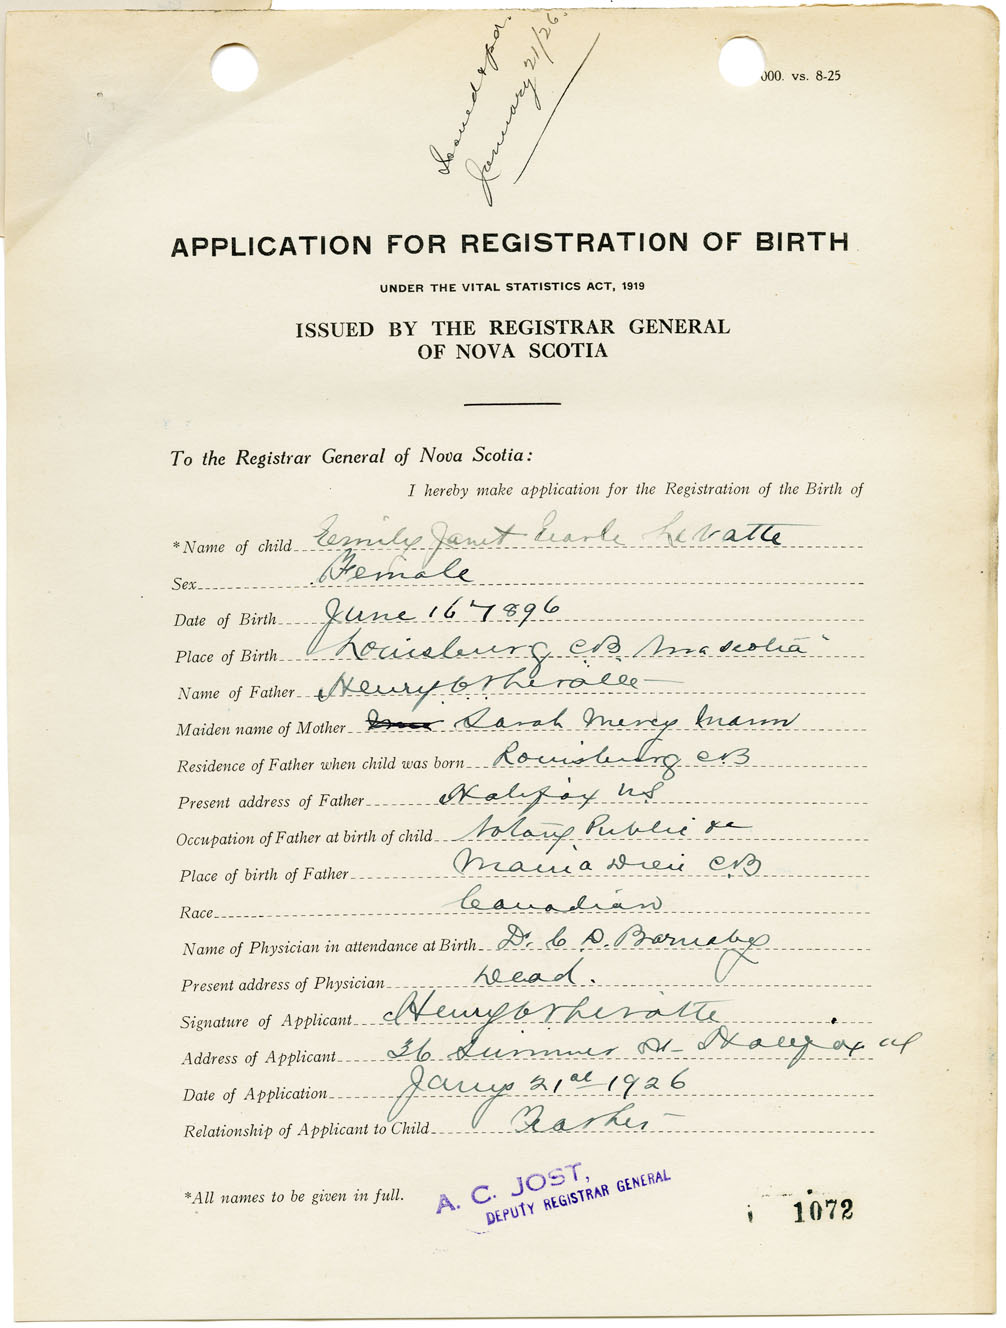 Issued & pd.
January 21/26.
000. vs. 8-25
APPLICATION FOR REGISTRATION OF BIRTH
UNDER THE VITAL STATISTICS ACT, 1919
ISSUED BY THE REGISTRAR GENERAL
OF NOVA SCOTIA
To the Registrar General of Nova Scotia:
I hereby make application for the Registration of the Birth of
*Name of child Emily Janet Earle LeVatte
Sex Female
Date of Birth June 16 1896
Place of Birth Louisburg C.B. Nova Scotia
Name of Father Henry LeVatte
Maiden name of Mother Sarah Mercy Mann
Residence of Father when child was born Louisburg CB
Present address of Father Halifax NS
Occupation of Father at birth of child Notary Public &c
Place of birth of Father Main a Dieu C.B
Race Canadian
Name of Physician in attendance at Birth Dr. C D. Barnaby
Present address of Physician Dead.
Signature of Applicant Henry LeVatte
Address of Applicant 36 Summer St- Halifax NS
Date of Application Jany 21st 1926
Relationship of Applicant to Child Father
*All names to be given in full.
A. C. JOST,
DEPUTY REGISTRAR GENERAL
1072